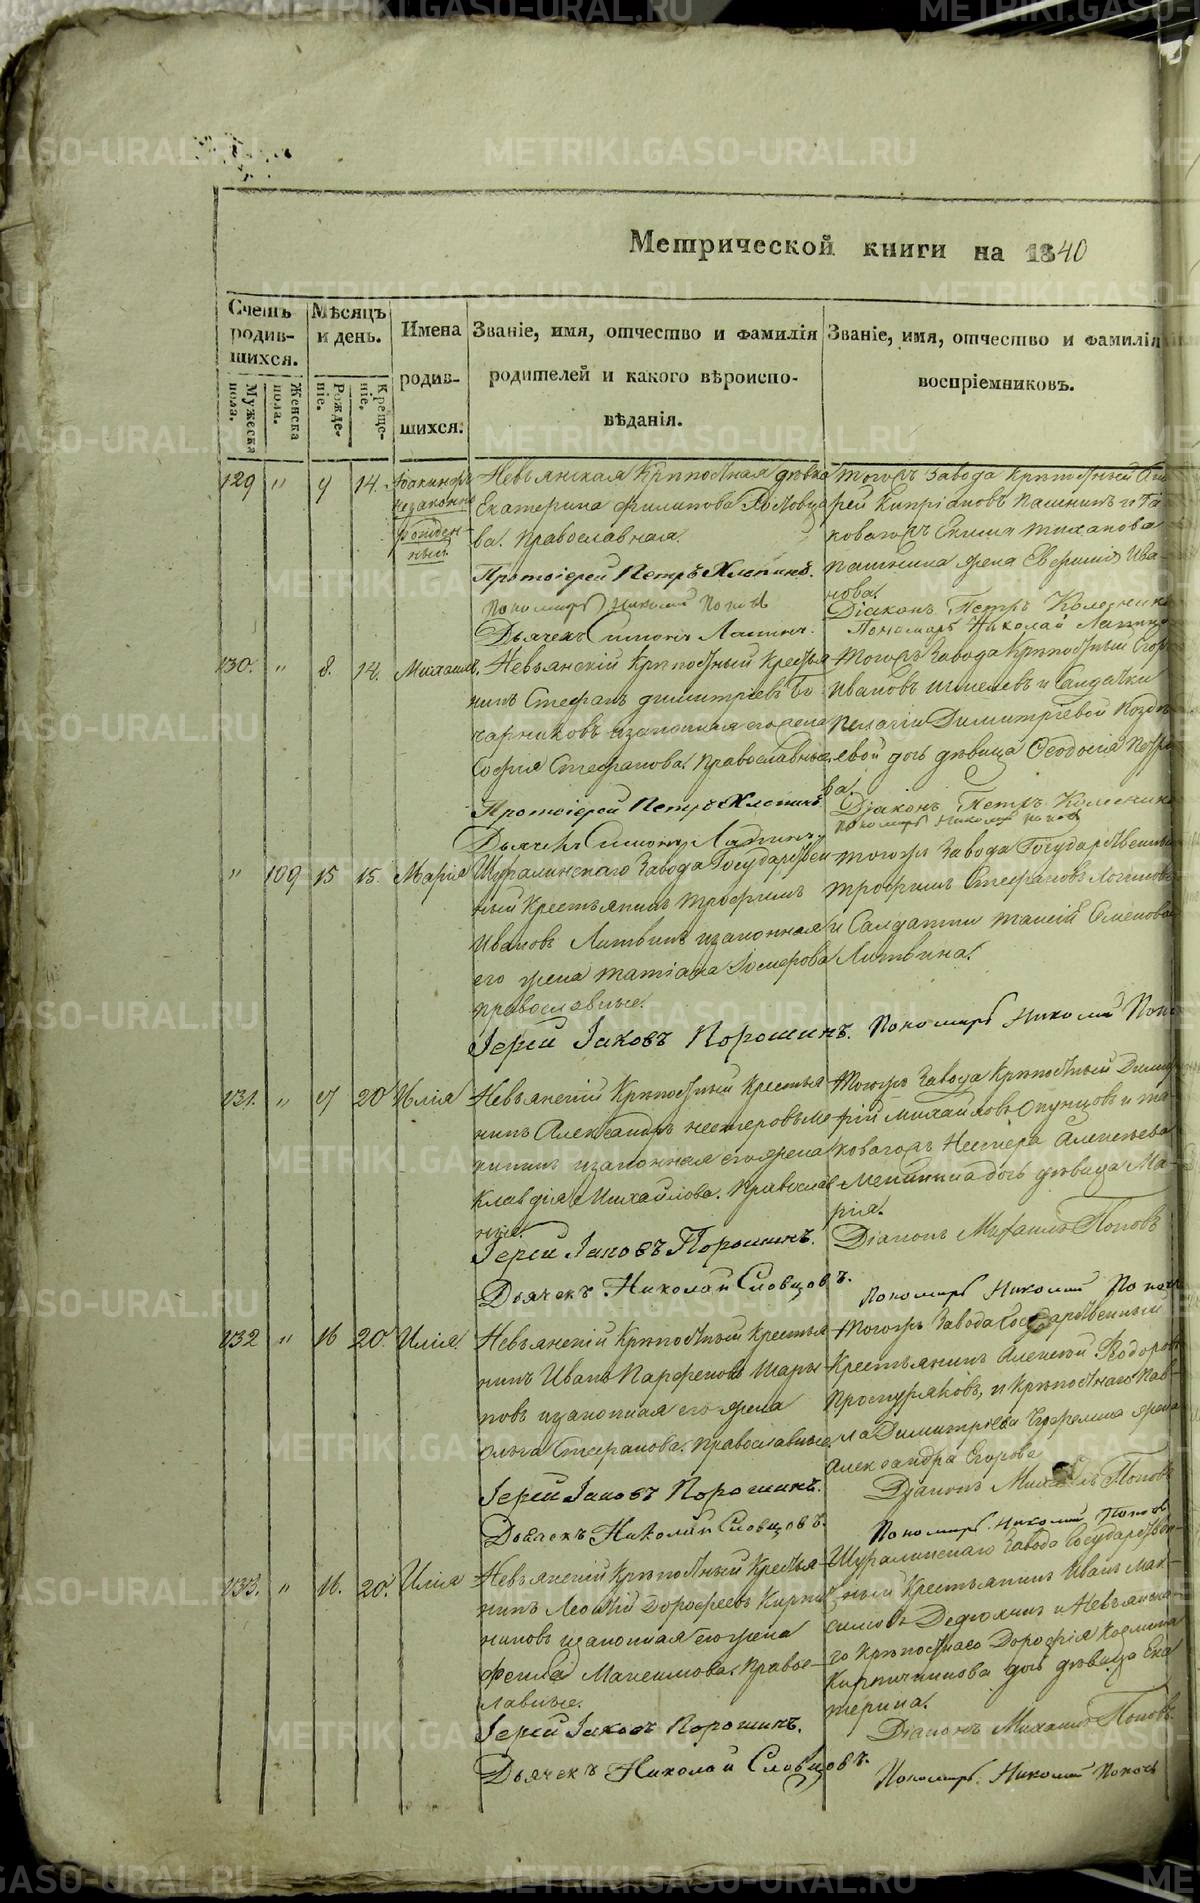 Метрической книги на 1840
Счетъ родив-шихся.
Мужеска пола.
Женска пола.
Мѣсяцъ и день.
Рожде-ніе.
Креще-ніе.
Имена родив-шихся.
Званіе, имя, отчество и фамилія
родителей и какого вѣроиспо-
вѣданія.
Званіе, имя, отчество и фамилія
воспріемниковъ.
129 " 9 14.
незаконно
рожден-
ный.
Невьянская Крѣпостная дѣвка
Екатерина Филипова
ва. Православная.
Протоіерей Петръ Хлепинъ.
Пономарь Николай Поповъ
Дьячекъ Симонъ Лапинъ.
Тогожъ Завода Крѣпостный
рей Кипріановъ Пашнинъ и Та
коваго жъ Екима Тиханова
Пашнина жена Ива
нова.
Діаконъ Петръ
Пономарь Николай
130. " 8. 14. Михаилъ.
Невьянскій Крѣпостный Крестья
нинъ Стефанъ Димитріевъ Бо
чарниковъ и законная его жена
Софія Стефанова. Православные.
Протоіерей Петръ Хлепинъ
Дьячекъ Симонъ Лапинъ.
Тогожъ Завода Крѣпостный Егор
Ивановъ Шмелевъ и Салдатки
Пелагіи Димитріевой
евой дочь дѣвица Ѳеодосія Петро
ва.
Діаконъ Петръ
Пономарь Николай Поповъ
" 109 15 15. Марія
Шуралинскаго Завода Государствен
ный Крестьянинъ Трофимъ
Ивановъ Литвинъ и законная
его жена Татіана
православные.
Іерей Іаковъ Порошинъ.
Тогожъ Завода Государственный
Трофимъ Стефановъ Логиновъ
и Салдатки Таисіи Семенова
Литвина.
Пономарь Николай Попо
131. " 17 20 Илія
Невьянскій Крѣпостный Крестья
нинъ Александръ Нестеровъ Ме
и законная его жена
Клавдія Михайлова. Православ
ные.
Іерей Іаковъ Порошинъ.
Дьячекъ Николай Словцовъ.
Тогожъ Завода Крѣпостный Дими
трій Михайловъ Опунцовъ и та
ковагожъ Нестера Алексѣева
дочь дѣвица Ма-
рія.
Діаконъ Михаилъ Поповъ
Пономарь Николай Поповъ
132 " 16 20. Илія.
Невьянскій Крѣпостный Крестья
нинъ Иванъ Парфеновъ Шары-
повъ и законная его жена
Ольга Стефанова. Православные.
Іерей Іаковъ Порошинъ.
Дьячекъ Николай Словцовъ.
Тогожъ Завода Государственный
Крестьянинъ Алексѣй Ѳедоровъ
Проскуряковъ, и Крѣпостнаго Пав-
ла Димитріева жена
Александра Егорова
Діаконъ Михаилъ Поповъ
Пономарь Николай Поповъ
133. " 16. 20. Илія
Невьянскій Крѣпостный Крестья-
нинъ Леонтій Дорофеевъ Кирпич
никовъ и законная его жена
Максимова. Правос-
лавные.
Іерей Іаковъ Порошинъ.
Дьячекъ Николай Словцовъ.
Шуралинскаго Завода Государствен-
ный Крестьянинъ Иванъ Мак-
симовъ Дедюхинъ и Невьянска-
го Крѣпостнаго Дорофія Козмина
Кирпичникова дочь дѣвица Ека
терина.
Діаконъ Михаилъ Поповъ.
Пономарь Николай Поповъ